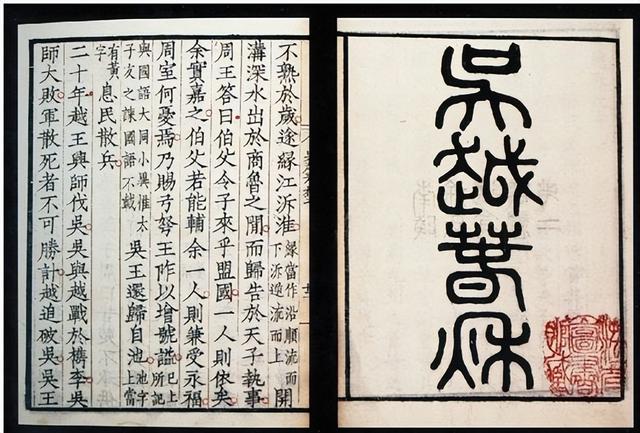 吳越春秋
不熟於歲途緣江泝淮緣當作沿順流而下泝逆流而上開
溝深水出於商魯之閒而歸告於天子執事
周王答曰伯父令子來乎盟國一人則依矣
余實嘉之伯父若能輔余一人則兼受永福
周室何憂焉乃賜弓弩王阼以增號謚已上所記
與國語大同小異惟太子友之諫國語不載吳王還歸自池池字上當
有黃字息民散兵
二十年越王興師伐吳吳與越戰於檇李吳
師大敗軍散死者不可勝計越迫破吳吳王